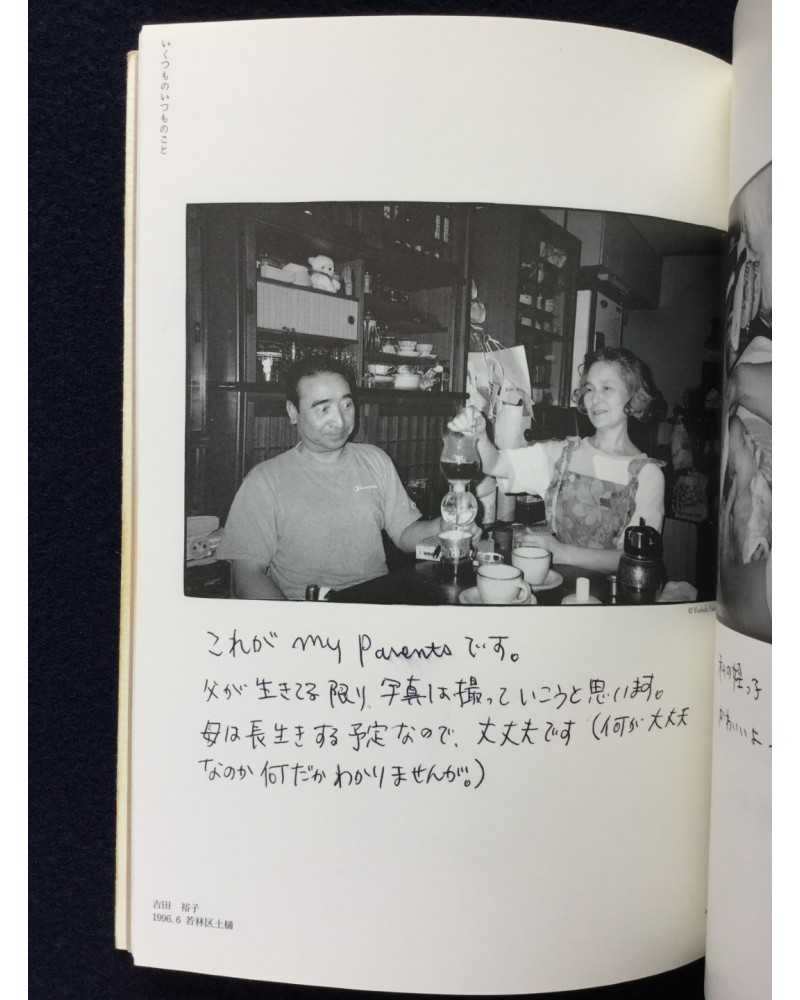 いくつものいつものこと
これが my parents です。
父が生きてる限り、写真は撮っていこうと思います。
母は長生きする予定なので、丈丈夫です（何が大丈夫
なのか何だかわかりませんが。）
吉田　裕子
1996. 6 若林区土樋
かわいいよ